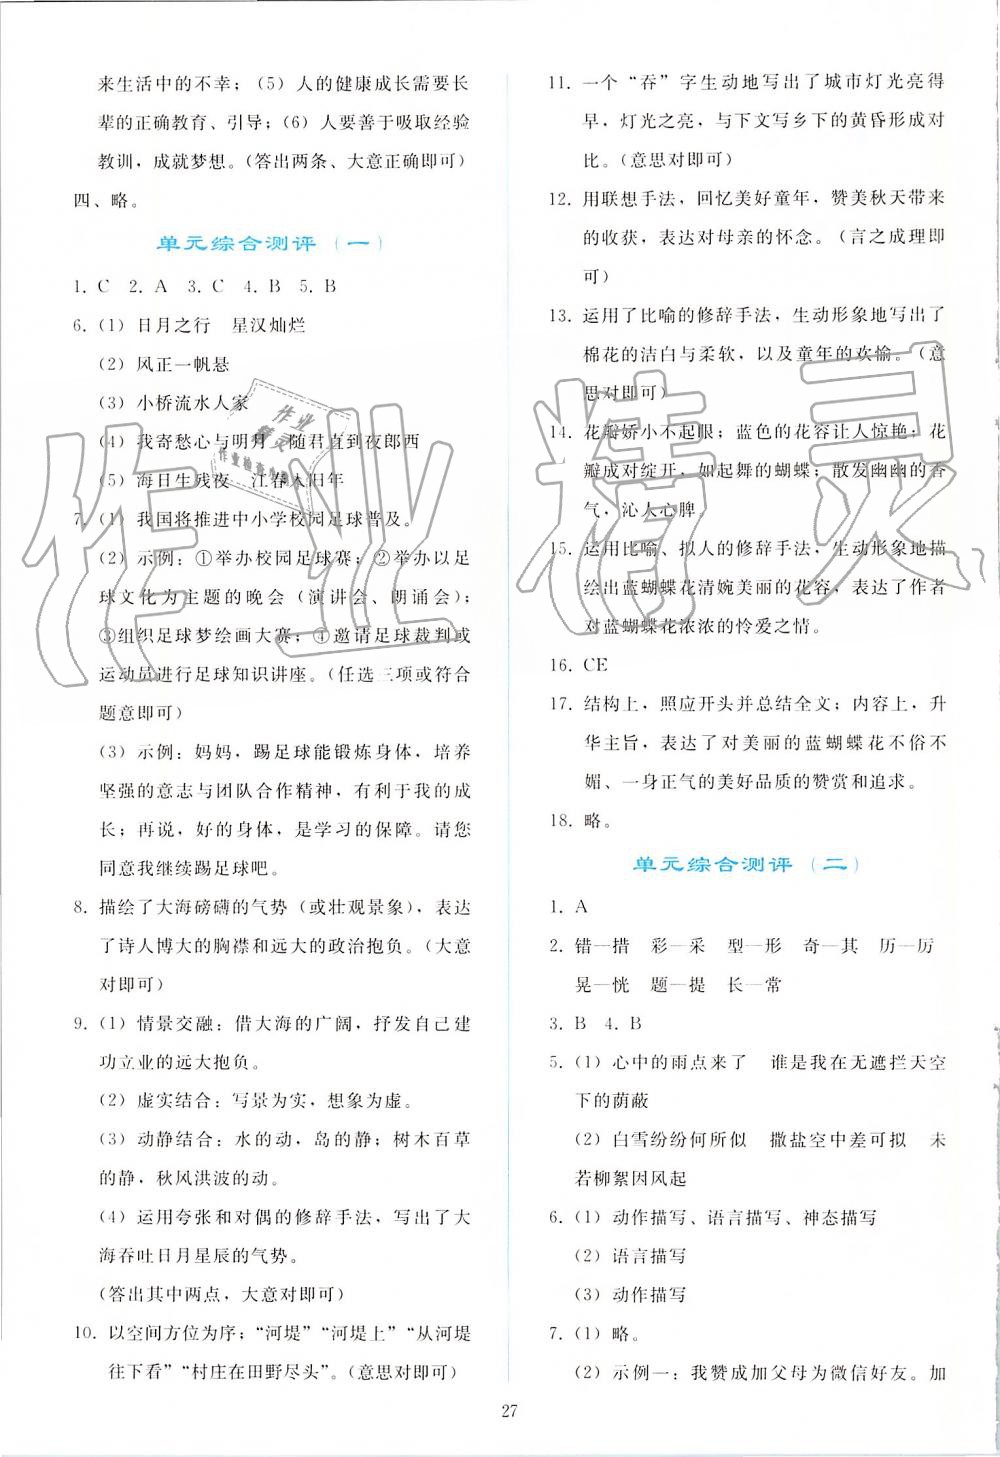 来生活中的不幸；（5）人的健康成长需要长
辈的正确教育、引导；（6）人要善于吸取经验
教训，成就梦想。（答出两条、大意正确即可）
四、略。
单元综合测评（一）
1. C 2. A 3. C 4. B 5. B
6.（1）日月之行 星汉灿烂
（2）风正一帆悬
（3）小桥流水人家
（4）我寄愁心与明月 随君直到夜郎西
（5）海日生残夜 江春入旧年
7.（1）我国将推进中小学校园足球普及。
（2）示例：①举办校园足球赛；②举办以足
球文化为主题的晚会（演讲会、朗诵会）；
③组织足球梦绘画大赛；④邀请足球裁判或
运动员进行足球知识讲座。（任选三项或符合
题意即可）
（3）示例：妈妈，踢足球能锻炼身体，培养
坚强的意志与团队合作精神，有利于我的成
长；再说，好的身体，是学习的保障。请您
同意我继续踢足球吧。
8. 描绘了大海磅礴的气势（或壮观景象），表达
了诗人博大的胸襟和远大的政治抱负。（大意
对即可）
9.（1）情景交融：借大海的广阔，抒发自己建
功立业的远大抱负。
（2）虚实结合：写景为实，想象为虚。
（3）动静结合：水的动，岛的静；树木百草
的静，秋风洪波的动。
（4）运用夸张和对偶的修辞手法，写出了大
海吞吐日月星辰的气势。
（答出其中两点，大意对即可）
10. 以空间方位为序；“河堤”“河堤上”“从河堤
往下看”“村庄在田野尽头”。（意思对即可）
11. 一个“吞”字生动地写出了城市灯光亮得
早，灯光之亮，与下文写乡下的黄昏形成对
比。（意思对即可）
12. 用联想手法，回忆美好童年，赞美秋天带来
的收获，表达对母亲的怀念。（言之成理即
可）
13. 运用了比喻的修辞手法，生动形象地写出了
棉花的洁白与柔软，以及童年的欢愉。（意
思对即可）
14. 花瓣娇小不起眼；蓝色的花容让人惊艳；花
瓣成对绽开，如起舞的蝴蝶；散发幽幽的香
气，沁人心脾。
15. 运用比喻、拟人的修辞手法，生动形象地描
绘出蓝蝴蝶花清婉美丽的花容，表达了作者
对蓝蝴蝶花浓浓的怜爱之情。
16. CE
17. 结构上，照应开头并总结全文；内容上，升
华主旨，表达了对美丽的蓝蝴蝶花不俗不
媚、一身正气的美好品质的赞赏和追求。
18. 略。
单元综合测评（二）
1. A
2. 错—措 彩—采 型—形 奇—其 历—厉
晃—恍 题—提 长—常
3. B 4. B
5.（1）心中的雨点来了 谁是我在无遮拦天空
下的荫蔽
（2）白雪纷纷何所似 撒盐空中差可拟 未
若柳絮因风起
6.（1）动作描写、语言描写、神态描写
（2）语言描写
（3）动作描写
7.（1）略。
（2）示例一：我赞成加父母为微信好友。加
27
作业精灵
作业
精灵